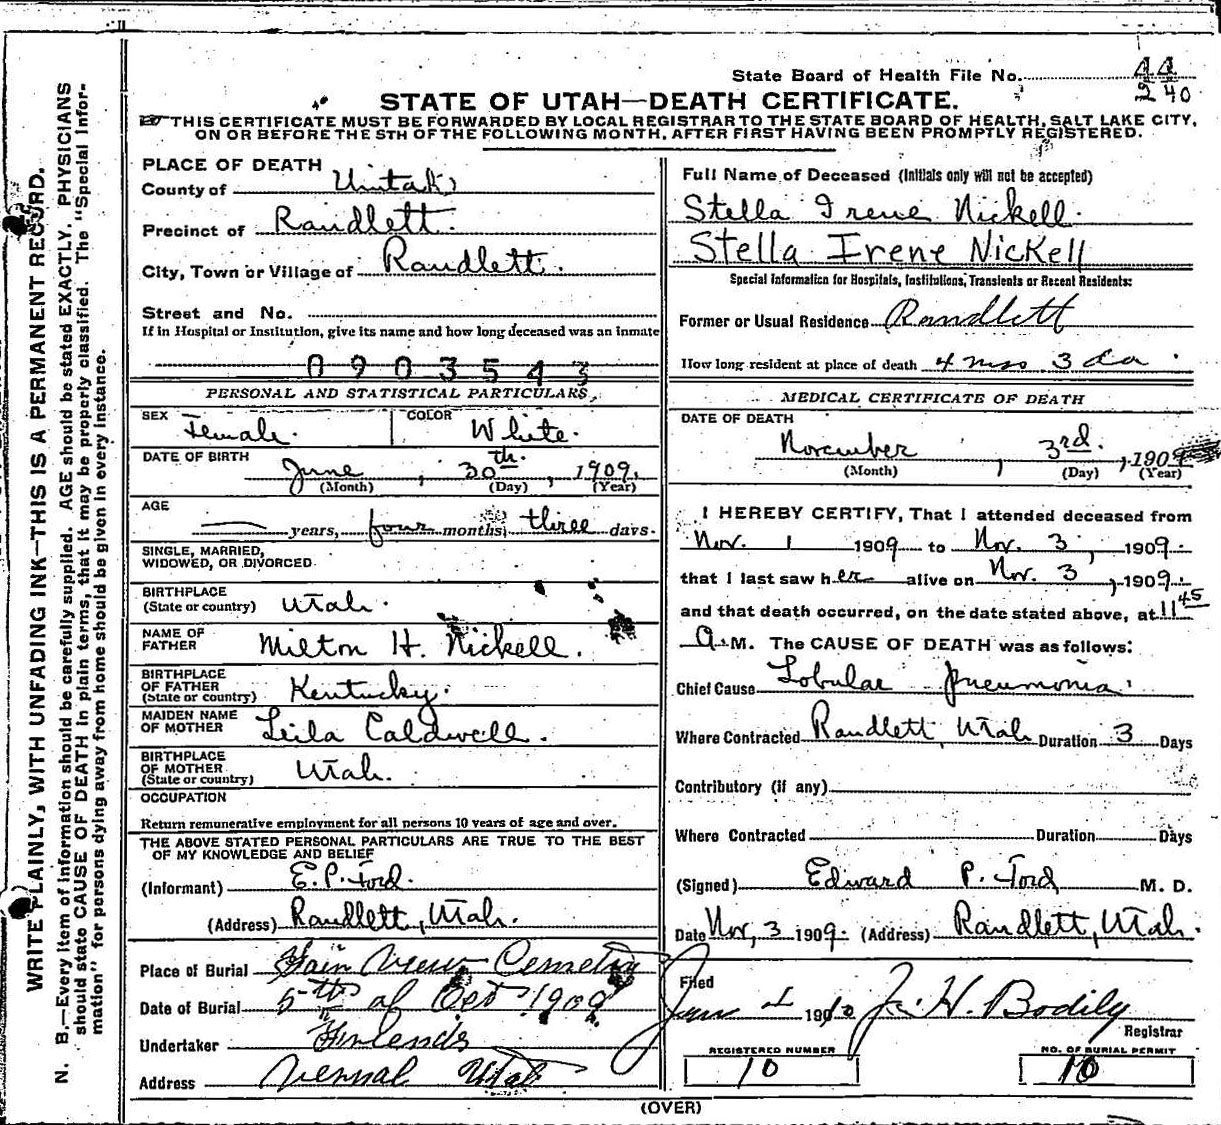 State Board of Health File No. 44
240
STATE OF UTAH—DEATH CERTIFICATE.
THIS CERTIFICATE MUST BE FORWARDED BY LOCAL REGISTRAR TO THE STATE BOARD OF HEALTH, SALT LAKE CITY,
ON OR BEFORE THE 5TH OF THE FOLLOWING MONTH, AFTER FIRST HAVING BEEN PROMPTLY REGISTERED.
WRITE PLAINLY, WITH UNFADING INK—THIS IS A PERMANENT RECORD.
N. B.—Every item of information should be carefully supplied. AGE should be stated EXACTLY. PHYSICIANS
should state CAUSE OF DEATH in plain terms, that it may be properly classified. The "Special Infor-
mation" for persons dying away from home should be given in every instance.
PLACE OF DEATH
County of Uintah
Precinct of Randlett.
City, Town or Village of Randlett.
Street and No.
If in Hospital or Institution, give its name and how long deceased was an inmate
0903543
PERSONAL AND STATISTICAL PARTICULARS
SEX Female. COLOR White.
DATE OF BIRTH
June, 30th, 1909.
(Month) (Day) (Year)
AGE
— years, four months, three days.
SINGLE, MARRIED,
WIDOWED, OR DIVORCED
BIRTHPLACE
(State or country) Utah.
NAME OF
FATHER Milton H. Nickell.
BIRTHPLACE
OF FATHER
(State or country) Kentucky.
MAIDEN NAME
OF MOTHER Leila Caldwell.
BIRTHPLACE
OF MOTHER
(State or country) Utah.
OCCUPATION
Return remunerative employment for all persons 10 years of age and over.
THE ABOVE STATED PERSONAL PARTICULARS ARE TRUE TO THE BEST
OF MY KNOWLEDGE AND BELIEF
(Informant) E. P. Ford.
(Address) Randlett, Utah.
Place of Burial Fair View Cemetry
Date of Burial 5th of Oct 1909
Undertaker
Address Vernal Utah
Full Name of Deceased (Initials only will not be accepted)
Stella Irene Nickell.
Stella Irene Nickell
Special Information for Hospitals, Institutions, Transients or Recent Residents:
Former or Usual Residence Randlett
How long resident at place of death 4 mos 3 da
MEDICAL CERTIFICATE OF DEATH
DATE OF DEATH
November, 3rd., 1909
(Month) (Day) (Year)
I HEREBY CERTIFY, That I attended deceased from
Nov. 1 1909 to Nov. 3, 1909.
that I last saw her alive on Nov. 3, 1909.
and that death occurred, on the date stated above, at 11 45
A. M. The CAUSE OF DEATH was as follows:
Chief Cause Lobular pneumonia.
Where Contracted Randlett, Utah Duration 3 Days
Contributory (if any)
Where Contracted Duration Days
(Signed) Edward P. Ford M. D.
Date Nov, 3 1909. (Address) Randlett, Utah.
Filed
Jan 1 1910 J. H. Bodily
Registrar
REGISTERED NUMBER
10
NO. OF BURIAL PERMIT
10
(OVER)